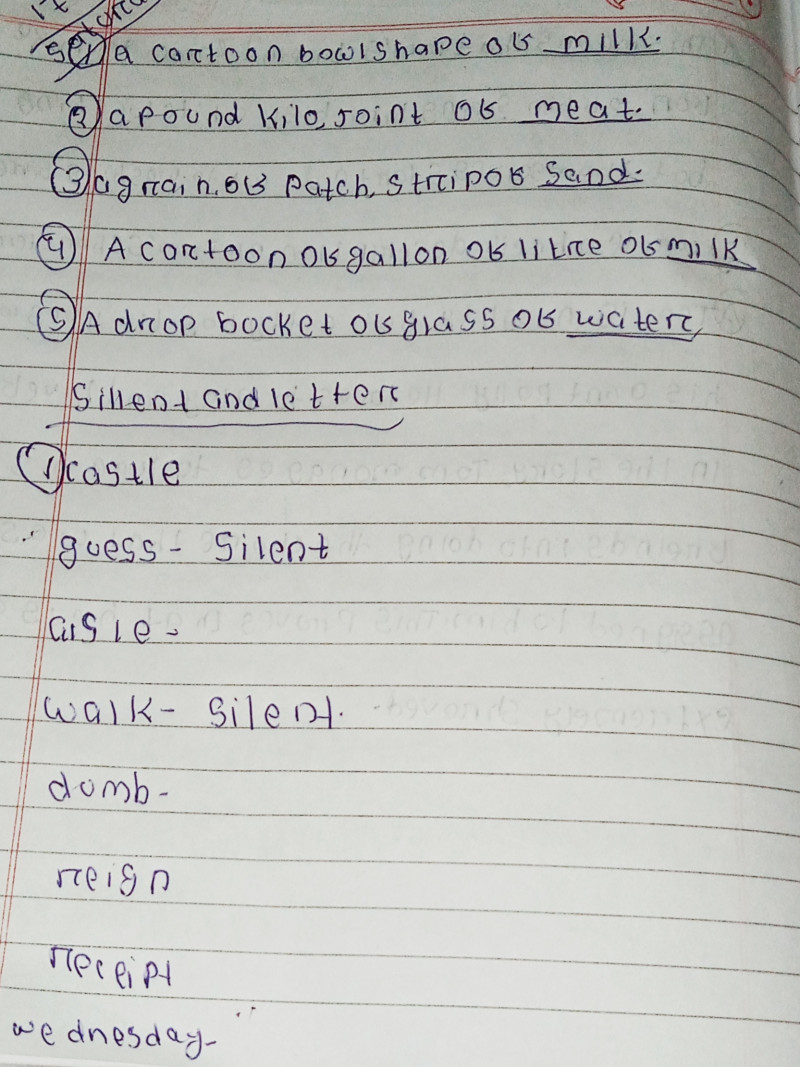 a cartoon bowlshape of milk.
② a pound kilo, joint of meat.
③ a grain, of patch, strip of sand.
④ A cartoon of gallon of litre of milk
⑤ A drop bocket of glass of water,
Sillent and letter
① castle
guess - silent
aisle -
walk - silent.
dumb -
reign
receipt
wednesday -